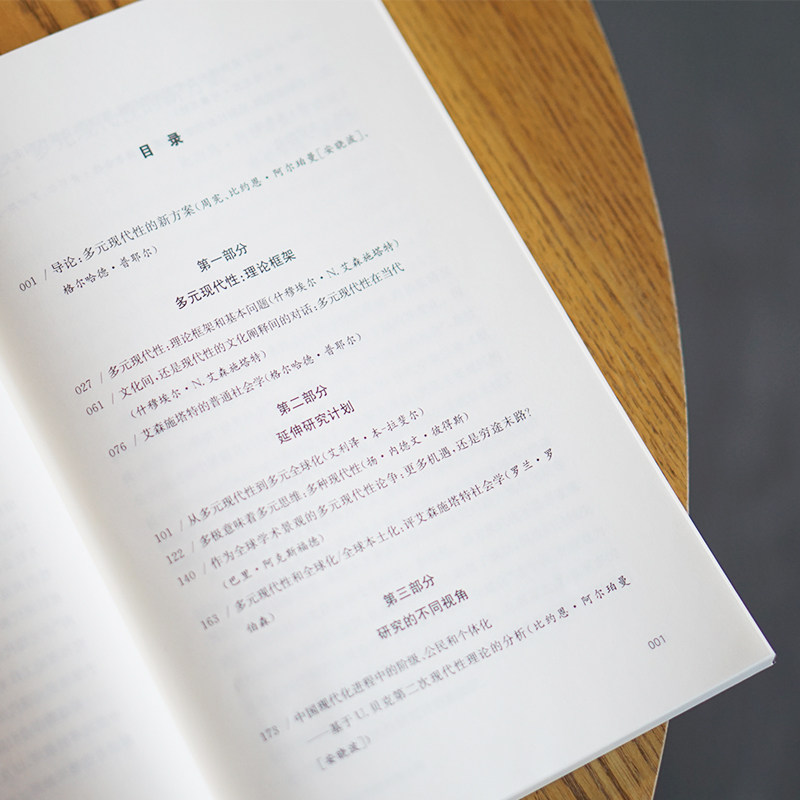 目 录
001 / 导论:多元现代性的新方案(周宪、比约恩·阿尔珀曼[安晓波]、
格尔哈德·普耶尔)
第一部分
多元现代性:理论框架
027 / 多元现代性:理论框架和基本问题(什穆埃尔·N.艾森施塔特)
061 / 文化间,还是现代性的文化阐释间的对话:多元现代性在当代
(什穆埃尔·N.艾森施塔特)
076 / 艾森施塔特的普通社会学(格尔哈德·普耶尔)
第二部分
延伸研究计划
101 / 从多元现代性到多元全球化(艾利泽·本-拉斐尔)
122 / 多极意味着多元思维:多种现代性(扬·内德文·彼得斯)
140 / 作为全球学术景观的多元现代性论争:更多机遇,还是穷途末路?
(巴里·阿克斯福德)
163 / 多元现代性和全球化/全球本土化:评艾森施塔特社会学(罗兰·罗
伯森)
第三部分
研究的不同视角
173 / 中国现代化进程中的阶级、公民和个体化
——基于U.贝克第二次现代性理论的分析(比约恩·阿尔珀曼
[安晓波])
001